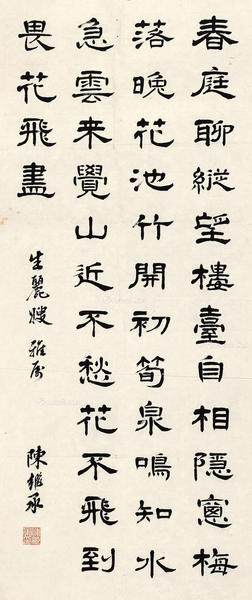 春庭聊縱望樓臺自相隱窻梅
落晚花池竹開初筍泉鳴知水
急雲來覺山近不愁花不飛到
畏花飛盡
生麗嫂雅属
陳承